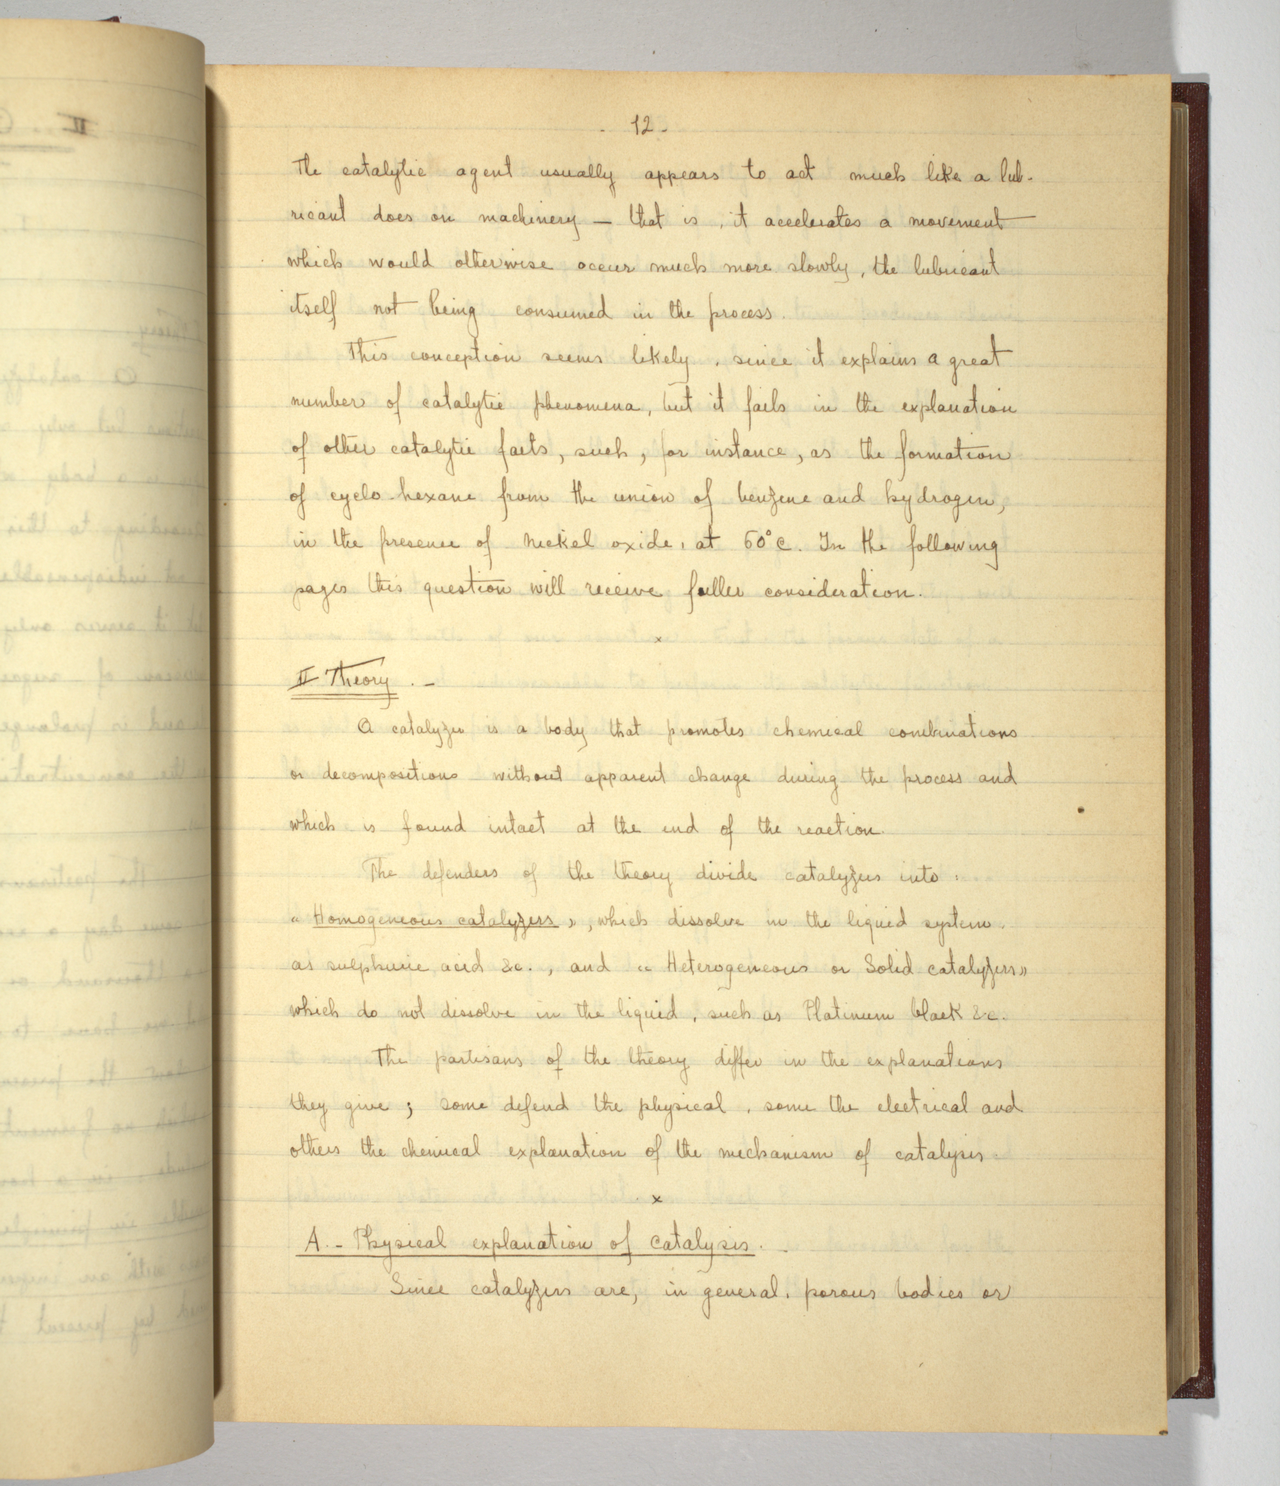 - 12 -
The catalytic agent usually appears to act much like a lub-
ricant does on machinery — that is, it accelerates a movement
which would otherwise occur much more slowly, the lubricant
itself not being consumed in the process.
This conception seems likely, since it explains a great
number of catalytic phenomena, but it fails in the explanation
of other catalytic facts, such, for instance, as the formation
of cyclo-hexane from the union of benzene and hydrogen,
in the presence of nickel oxide, at 60°C. In the following
pages this question will receive fuller consideration.
x
II Theory. -
A catalyzer is a body that promotes chemical combinations
or decompositions without apparent change during the process and
which is found intact at the end of the reaction.
The defenders of the theory divide catalyzers into:
« Homogeneous catalyzers », which dissolve in the liquid system
as sulphuric acid &c., and « Heterogeneous or Solid catalyzers »
which do not dissolve in the liquid, such as Platinum black &c.
The partisans of the theory differ in the explanations
they give; some defend the physical, some the electrical and
others the chemical explanation of the mechanism of catalysis.
x
A. - Physical explanation of catalysis. -
Since catalyzers are, in general, porous bodies or